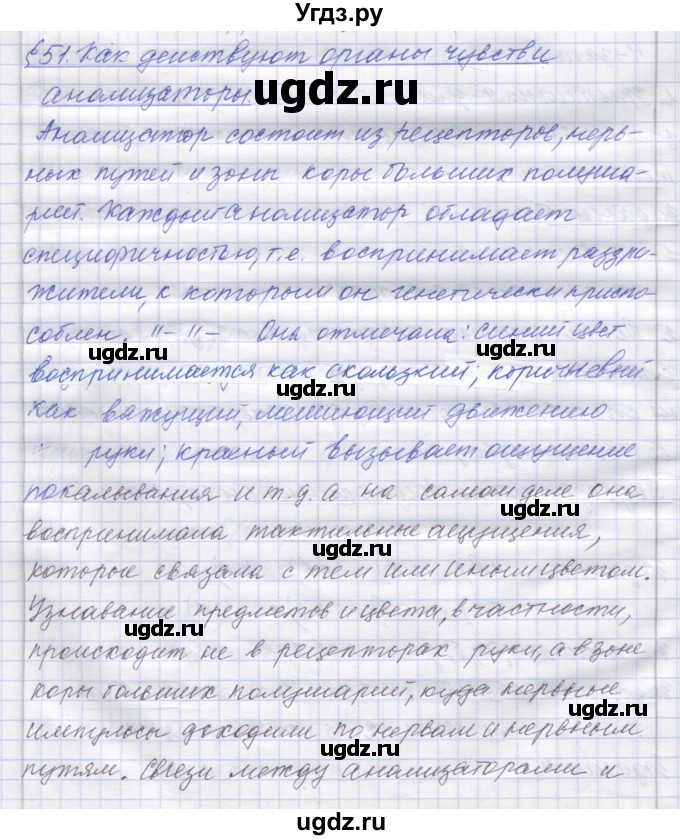 Угдз.ру
§51. Как действуют органы чувств и
анализаторы.
ugdz.ru
Анализатор состоит из рецепторов, нерв-
ных путей и зоны коры больших полуша-
рий. Каждый анализатор обладает
специфичностью, т.е. воспринимает раздра-
жители, к которым он генетически приспо-
соблен. "- "- Она отмечала: синий цвет
ugdz.ru
ugdz.ru
воспринимается как скользкий; коричневый
как вяжущий, мешающий движению
руки; красный вызывает ощущение
покалывания и т.д. а на самом деле она
ugdz.ru
воспринимала тактильные ощущения,
ugdz.ru
которые связала с тем или иным цветом.
Узнавание предметов и цвета, в частности,
ugdz.ru
происходит не в рецепторах руки, а в зоне
коры больших полушарий, куда нервные
импульсы доходили по нервам и нервным
ugdz.ru
путям. Связи между анализаторами и
ugdz.ru